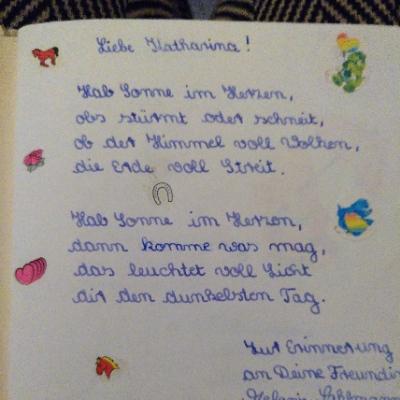 Liebe Katharina!
Hab Sonne im Herzen,
obs stürmt oder schneit,
ob der Himmel voll Wolken,
die Erde voll Streit.
Hab Sonne im Herzen,
dann komme was mag,
das leuchtet voll Licht
dir den dunkelsten Tag.
Zur Erinnerung
an Deine Freundin
Melanie